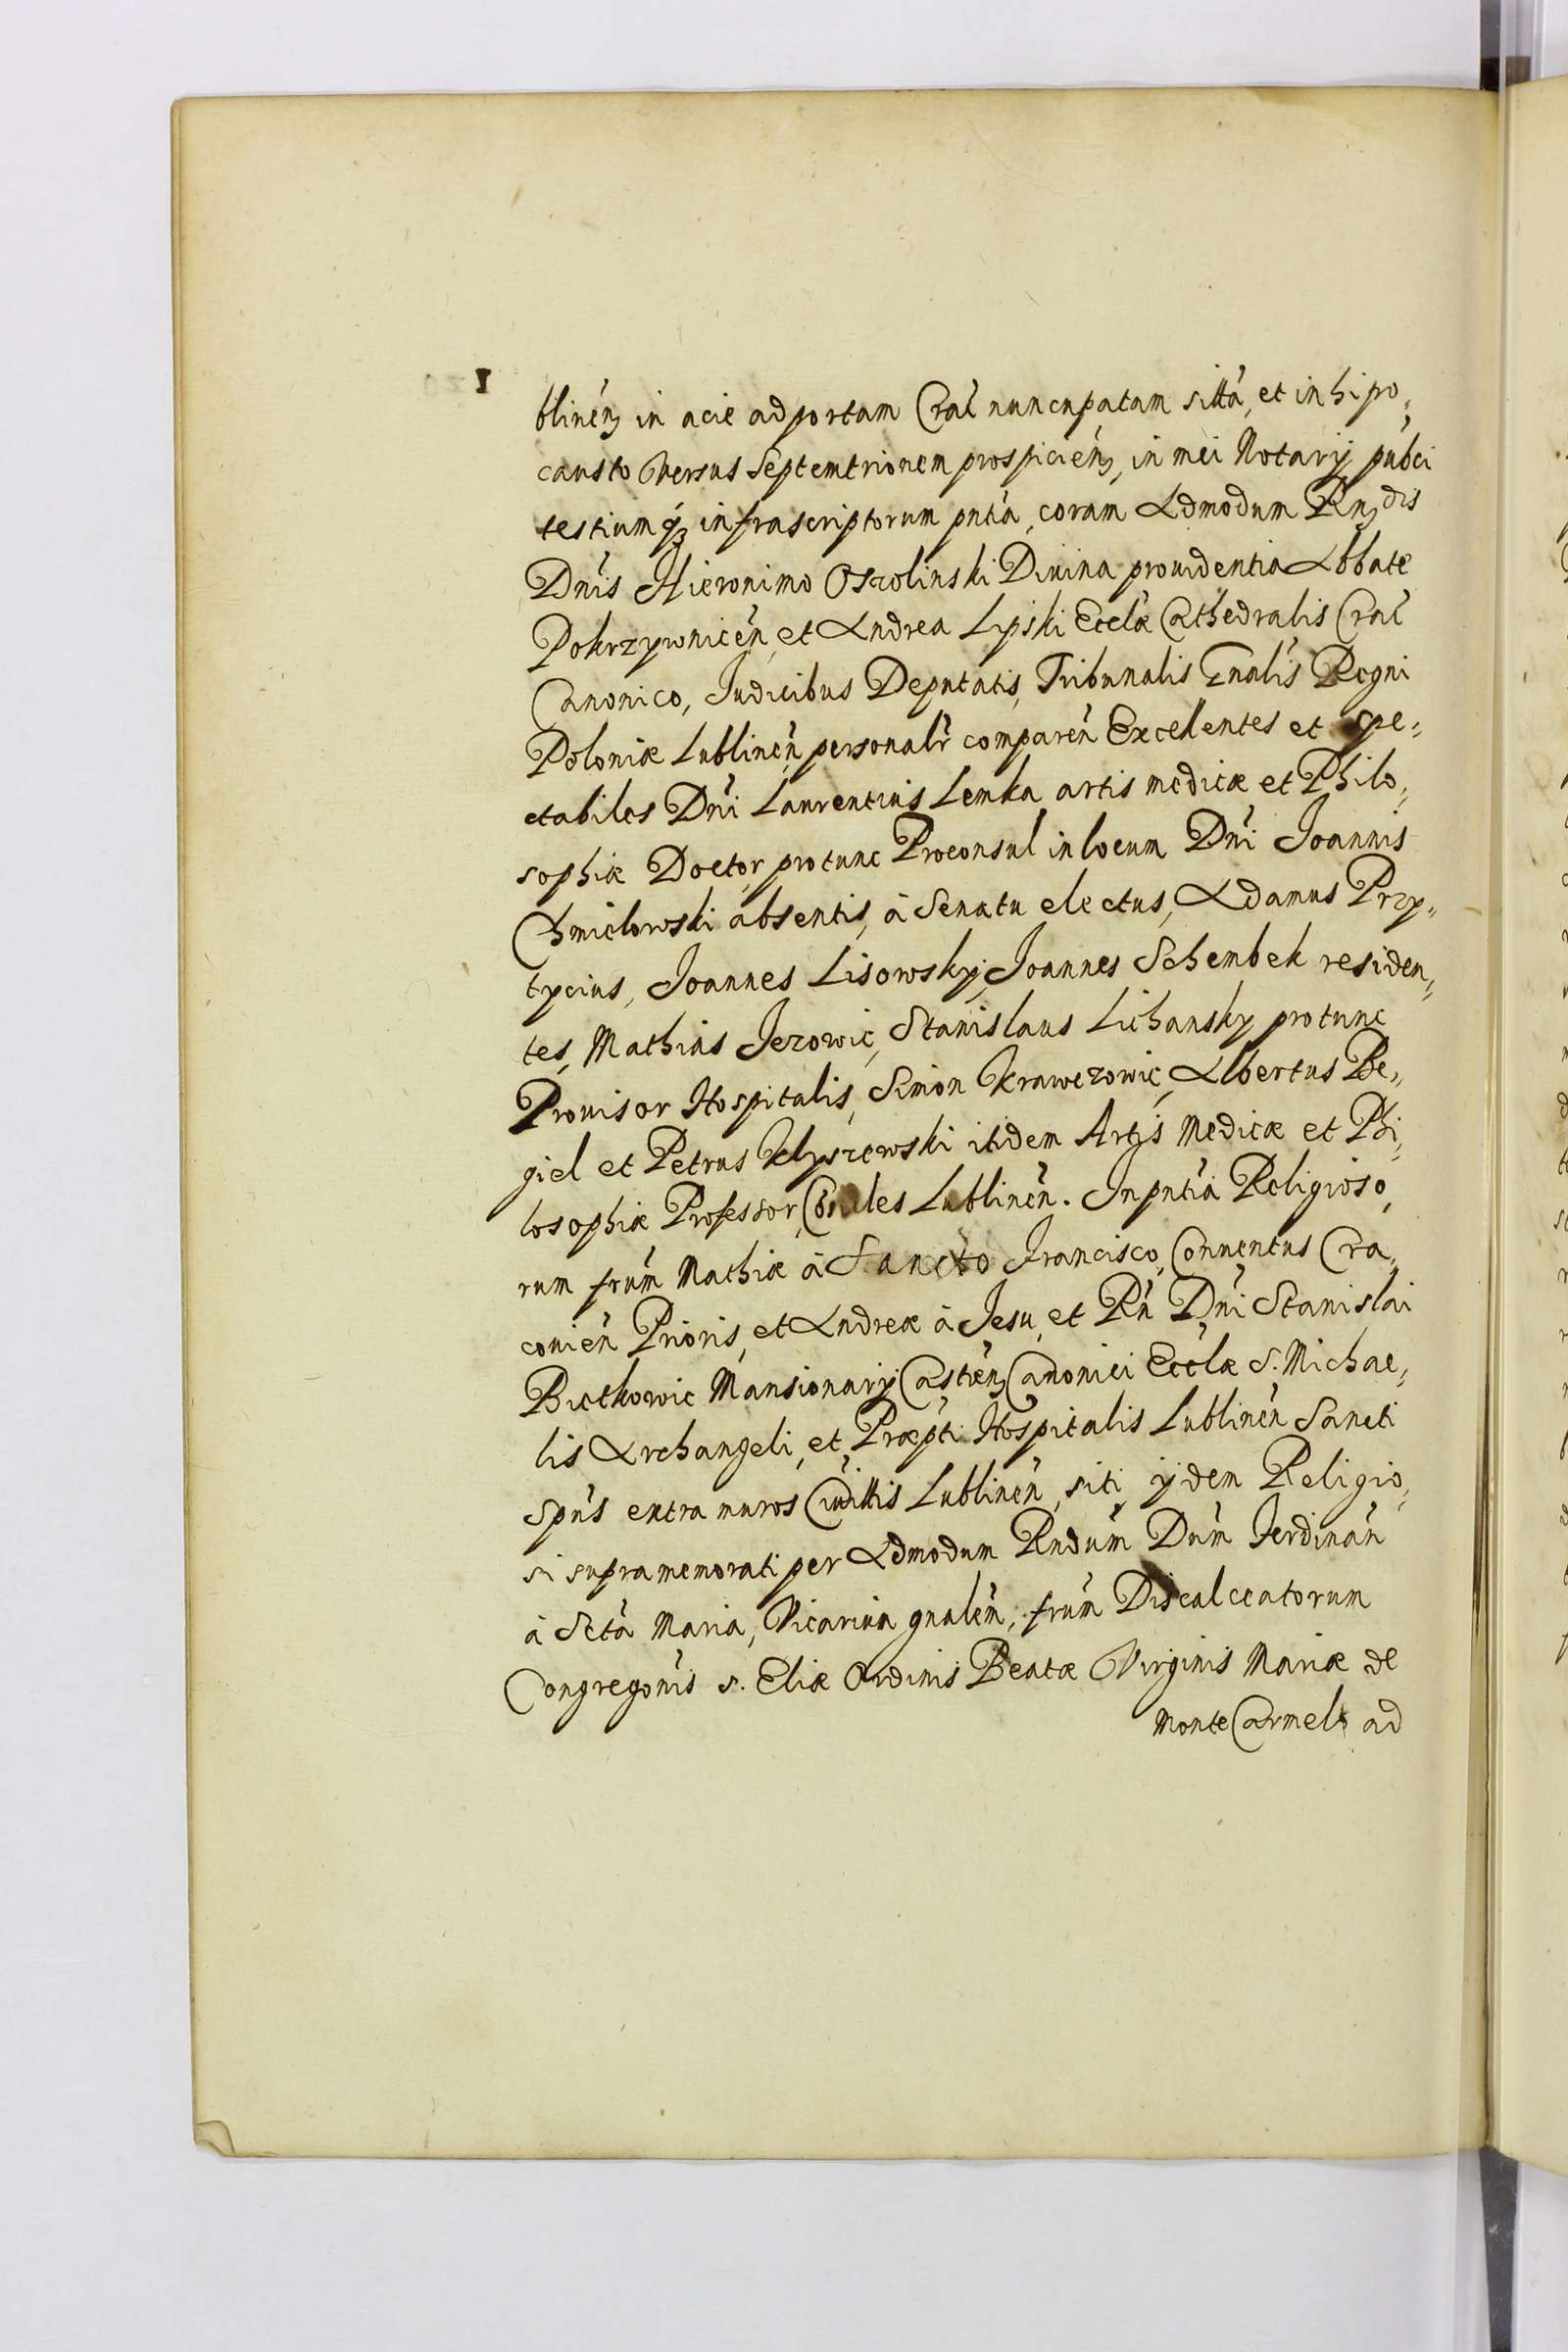 I
blinen̄ in acie ad portam Cral̄ nuncupatam sittā, et in hipo„
causto versus Septemtrionem prospicien̄, in mei Notarij pub̄ci
testiumq3 infrascriptorum pn̄tia, coram Admodum Rn̄dis
Dn̄is Hieronimo Oszolinski Diuina prouidentia Abbate
Pokrzywnicen̄, et Andrea Lipski Eccl̄æ Cathedralis Cral̄
Canonico, Judicibus Deputatis, Tribunalis Gnalis̄ Regni
Poloniæ Lublinen̄ personalr̄ comparen̄ Excelentes et Spe„
ctabiles Dn̄i Laurentius Lemka artis medicæ et Philo„
sophiæ Doctor, protunc Proconsul in locum Dn̄i Joannis
Chmielowski absentis, à Senatu electus, Adamus Przy„
tycius, Joannes Lisowsky, Joannes Schembek residen„
tes, Mathias Jezowic, Stanislaus Lichansky protunc
Prouisor Hospitalis, Simon Krawczowic, Albertus Re„
giel et Petrus Klyszewski itidem Artis Medicæ et Phi„
losophiæ Professor, Con̄sules Lublinen̄. In pn̄tia Religioso„
rum frūm Mathiæ à Sancto Francisco, Conuentus Cra„
couien̄ Prioris, et Andreæ à Jesu, et Rn̄ Dn̄i Stanislai
Bietkowic Mansionarij Castien̄, Canonici Eccl̄æ S. Michae„
lis Archangeli, et Præp̄ti Hospitalis Lublinen̄ Sancti
Spūs extra muros Ciuittis̄ Lublinen̄, siti, ijdem Religio„
si supramemorati per Admodum Rndūm Dnūm Ferdinan̄
à Sctā Maria, Vicarium gnalem̄, frūm Discalceatorum
Congregonis̄ S. Eliæ Ordinis Beatæ Virginis Mariæ de
Monte Carmelo ad